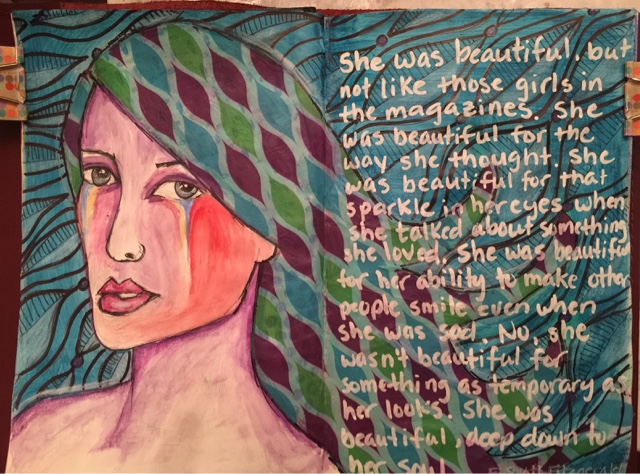 She was beautiful. but
not like those girls in
the magazines. She
was beautiful for the
way she thought. She
was beautiful for that
sparkle in her eyes when
she talked about something
she loved. She was beautiful
for her ability to make other
people smile even when
she was sad. No, she
wasn't beautiful for
something as temporary as
her looks. She was
beautiful, deep down to
her soul